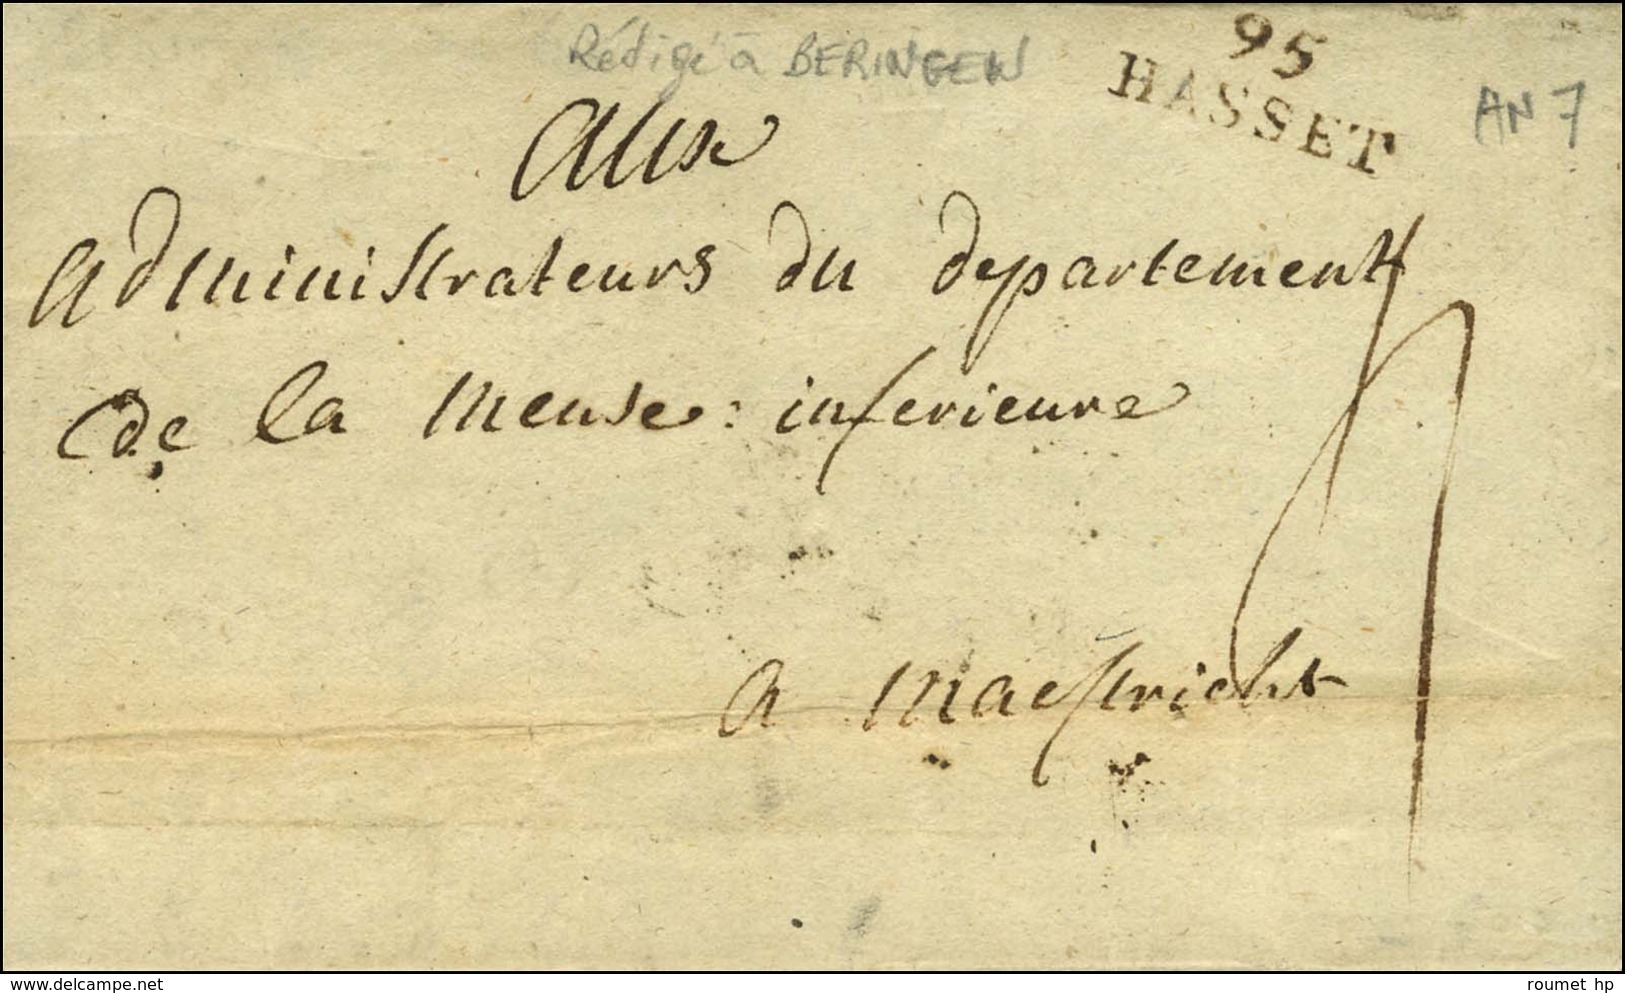 Rédigé à BERINGEN
95
HASSET
AN 7
Aux
administrateurs du departement
de la meuse: inferieure
a maestricht
delcampe.net
roumet hp